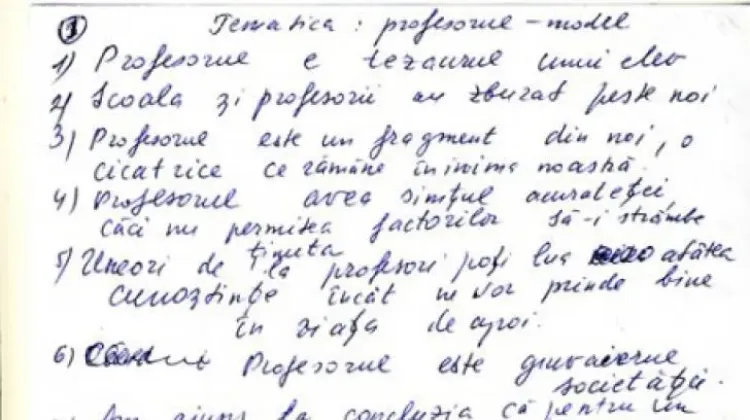 ① Tematica: profesorul - model
1) Profesorul e tezaurul unui elev
2) Școala și profesorii au zburat peste noi
3) Profesorul este un fragment din noi, o
cicatrice ce rămâne în inima noastră.
4) Profesorul avea simțul acurateței,
căci nu permitea factorilor să-i strâmbe
ținuta
5) Uneori de la profesori poți lua atâtea
cunoștințe încât ne vor prinde bine
în viața de apoi.
6) Profesorul este giuvaierul
societății.
Am ajuns la concluzia că pentru un